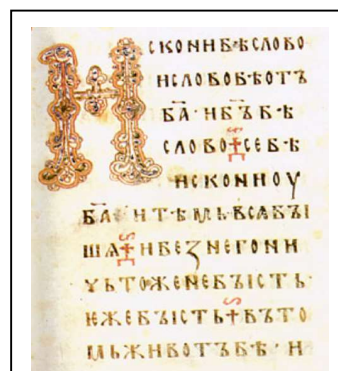 ИСКОНИБѢСЛОВО
ИСЛОВОБѢОТЪ
Б҃А·ИБ҃ЪБѢ
СЛОВО СЕБѢ
ИСКОНИОУ
Б҃А·ИТѢМЬВСѦБЪІ
ША ИБЕꙀНЕГОНИ
ЧЬТОЖЕНЕБЪІСТЬ·
ЕЖЕБЪІСТЬ ВЪТО
МЬЖИВОТЪБѢ·И